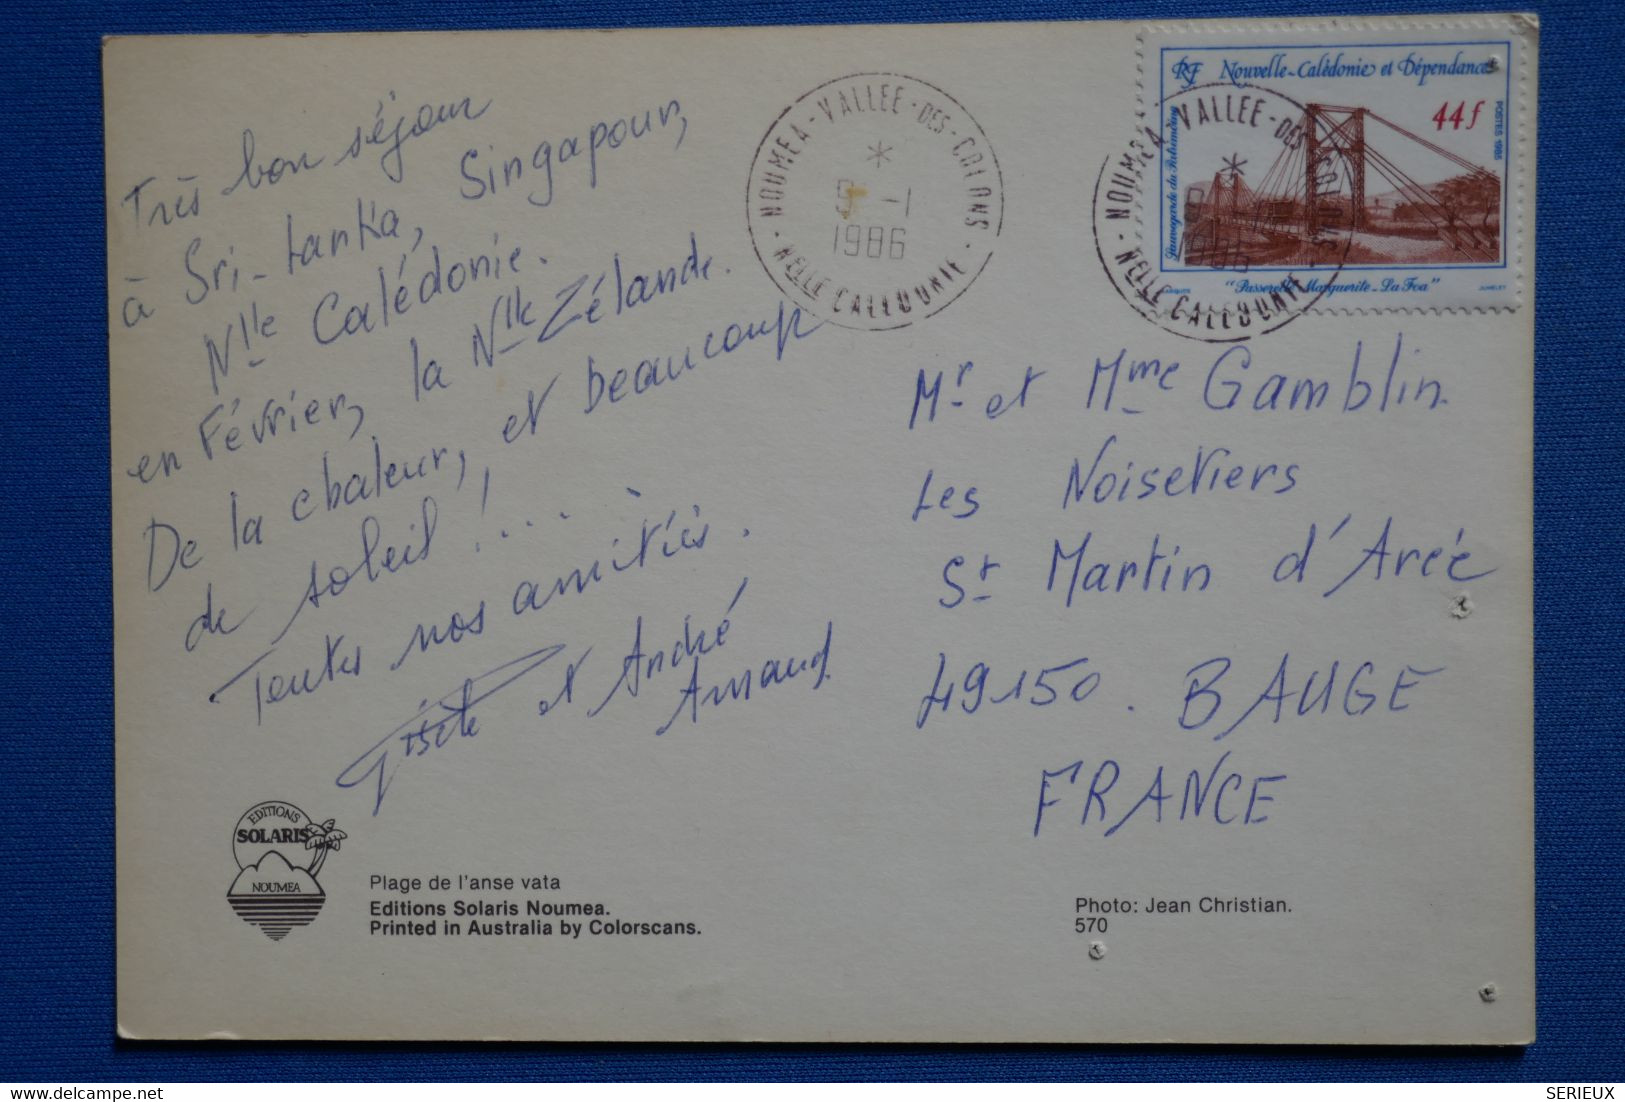 Très bon séjour
à Sri-Lanka, Singapour,
Nlle Calédonie.
en Février, la Nlle Zélande.
De la chaleur, et beaucoup
de soleil!...
Toutes nos amitiés.
Gisèle et André
Arnaud
NOUMEA-VALLEE-DES-COLONS
9 -1
1986
NELLE CALEDONIE
RF Nouvelle-Calédonie et Dépendances
44f
POSTES 1986
Sauvegarde du Patrimoine
"Passerelle Marguerite-La Foa"
JUMELET
NOUMEA-VALLEE-DES-COLONS
1986
NELLE CALEDONIE
Mr et Mme Gamblin.
Les Noisetiers
St Martin d'Arcé
49150. BAUGE
FRANCE
EDITIONS
SOLARIS
NOUMEA
Plage de l'anse vata
Editions Solaris Noumea.
Printed in Australia by Colorscans.
Photo: Jean Christian.
570
SERIEUX